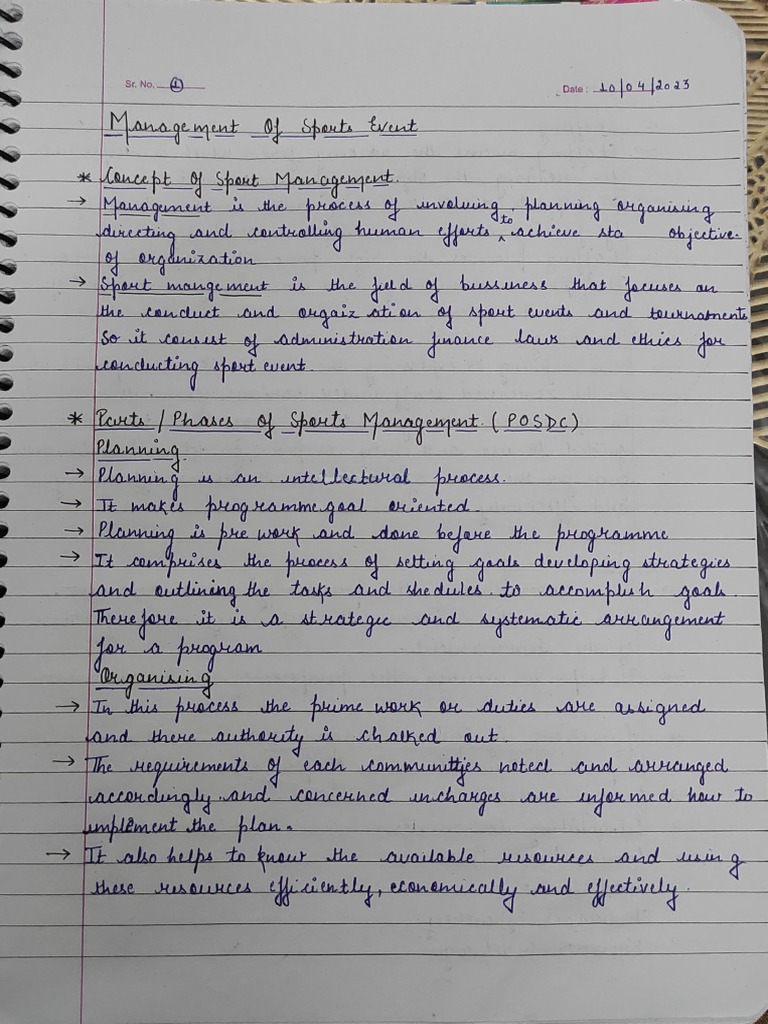 Sr. No. 1
Date : 10/04/2023
Management Of Sports Event
* Concept Of Sport Management.
→ Management is the process of involving planning organising
directing and controlling human efforts to achieve sta objective
of organization
→ Sport mangement is the field of bussiness that focuses on
the conduct and orgaiz ation of sport events and tournaments
So it consist of administration finance laws and ethics for
conducting sport event.
* Parts / Phases of Sports Management (POSDC)
Planning
→ Planning is an intellectural process.
→ It makes programme goal oriented.
→ Planning is pre work and done before the programme
→ It comprises the process of setting goals developing strategies
and outlining the tasks and shedules to accomplish goals.
Therefore it is a strategic and systematic arrangement
for a program
Organising
→ In this process the prime work or duties are assigned
and there authority is chalked out.
→ The requirements of each communitties noted and arranged
accordingly and concerned incharges are informed how to
implement the plan.
→ It also helps to know the available resources and using
these resources efficiently, economically and effectively.